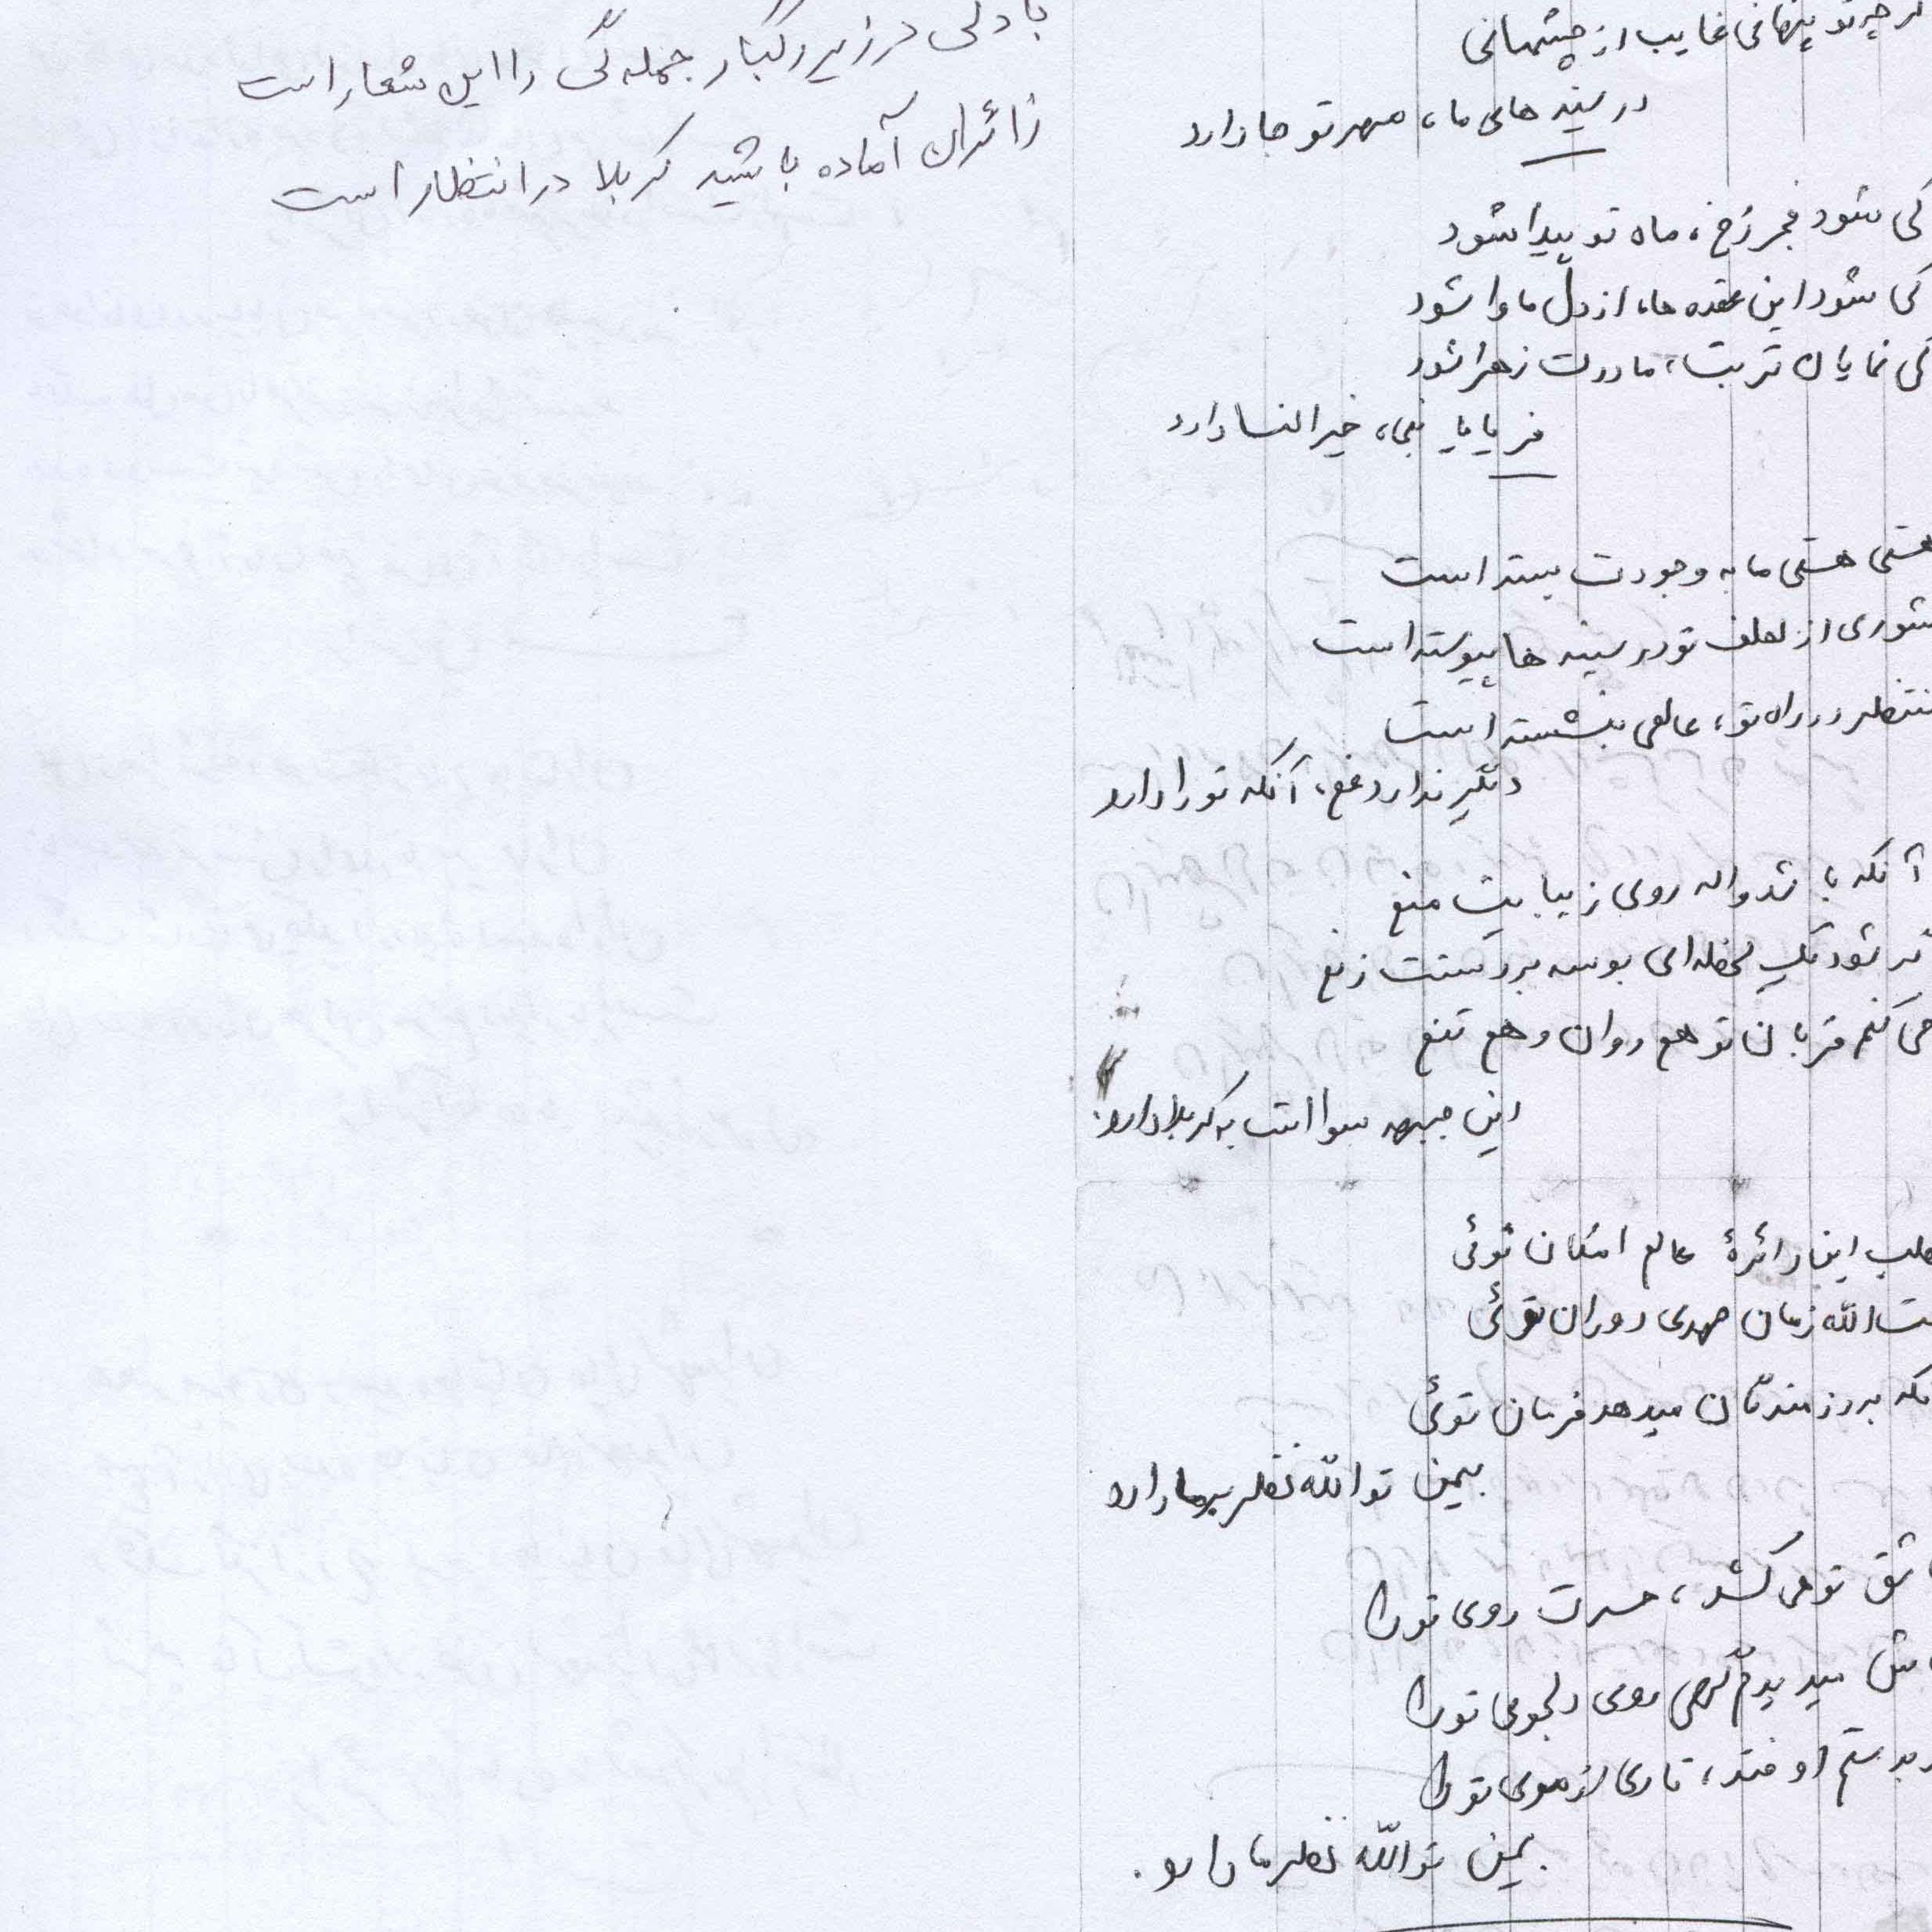 گر چه تو پنهانی غایب از چشمانی
در سینه های ما، مهر تو جا دارد
کی شود فجر رُخ، ماه تو پیدا شود
کی شود این عقده ها، از دل ما وا شود
کی نمایان تربت، مادرت زهرا شود
بنی، خیر النسا دارد
هستی ما به وجودت بسته است
شوری از لطف تو در سینه ها پیوسته است
منتظر در راه تو، عالمی بنشسته است
دیگر ندارد غم، آنکه تو را دارد
آنکه باشد واله روی زیبایت منم
گر شود یک لحظه ای بوسه بر دستت زنم
می کنم قربان تو هم روان و هم تنم
این جبهه کربلا دارد
این دائرهٔ عالم امکان توئی
الله زمان مهدی دوران توئی
رزمندگان میدهد فرمان توئی
بیمن تو الله نظر بر ما دارد
تو می کشد، حسرت روی تو را
میدیدم گهی روی دلجوی تو را
بدستم اوفتد، تاری از موی تو را
بیمن تو الله نظر ما دارد.
با دلی در زیر رگبار جمله گی را این شعار است
زائران آماده باشید کربلا در انتظار است